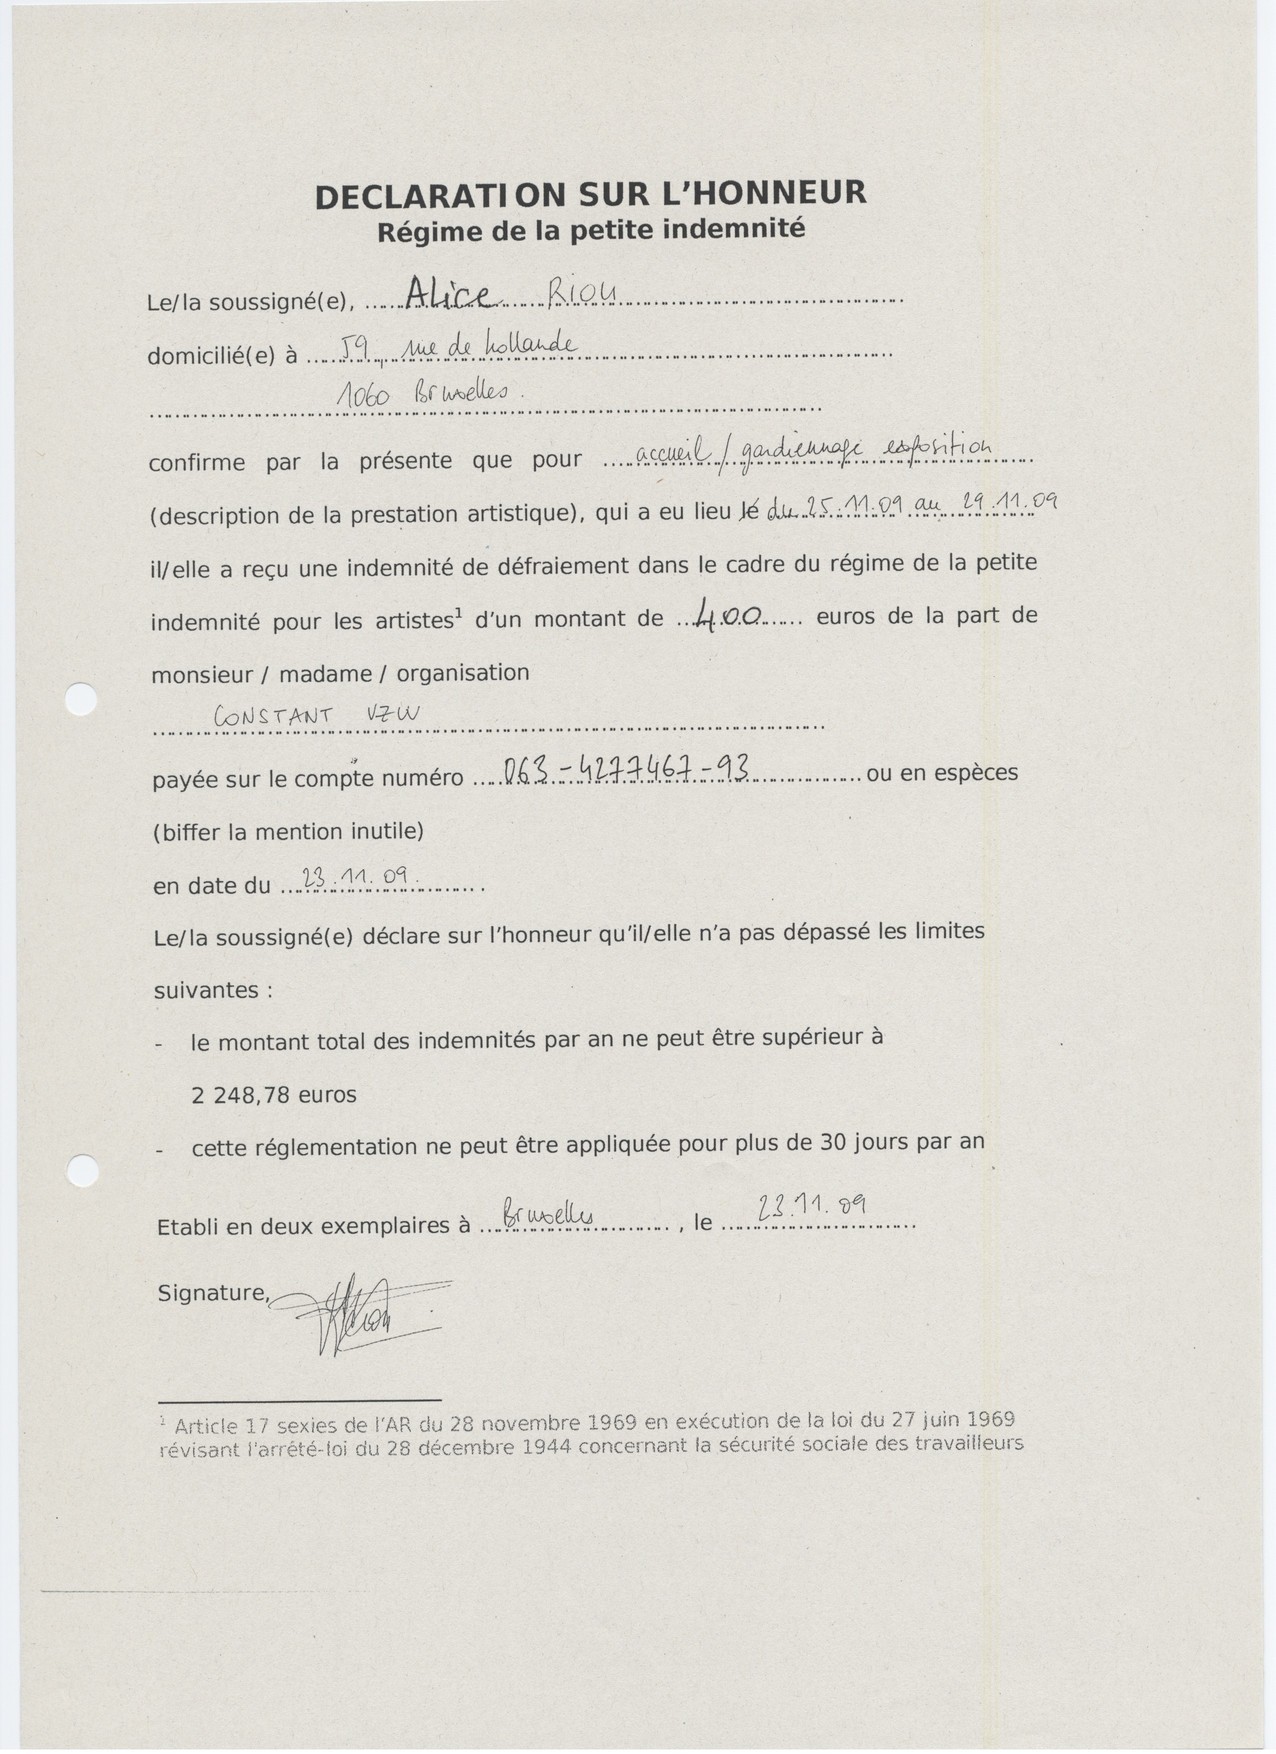 DECLARATION SUR L'HONNEUR
Régime de la petite indemnité
Le/la soussigné(e), ......Alice......Riou..............................
domicilié(e) à ......59, rue de hollande..............................
1060 Bruxelles.
confirme par la présente que pour ....accueil / gardiennage exposition....
(description de la prestation artistique), qui a eu lieu le du 25.11.09 au 29.11.09
il/elle a reçu une indemnité de défraiement dans le cadre du régime de la petite
indemnité pour les artistes¹ d'un montant de ...400...... euros de la part de
monsieur / madame / organisation
CONSTANT VZW
payée sur le compte numéro ....063-4277467-93................ ou en espèces
(biffer la mention inutile)
en date du ...23.11.09...........
Le/la soussigné(e) déclare sur l'honneur qu'il/elle n'a pas dépassé les limites
suivantes :
- le montant total des indemnités par an ne peut être supérieur à
2 248,78 euros
- cette réglementation ne peut être appliquée pour plus de 30 jours par an
Etabli en deux exemplaires à ...Bruxelles..........., le .....23.11.09.......
Signature,
¹ Article 17 sexies de l'AR du 28 novembre 1969 en exécution de la loi du 27 juin 1969
révisant l'arrété-loi du 28 décembre 1944 concernant la sécurité sociale des travailleurs